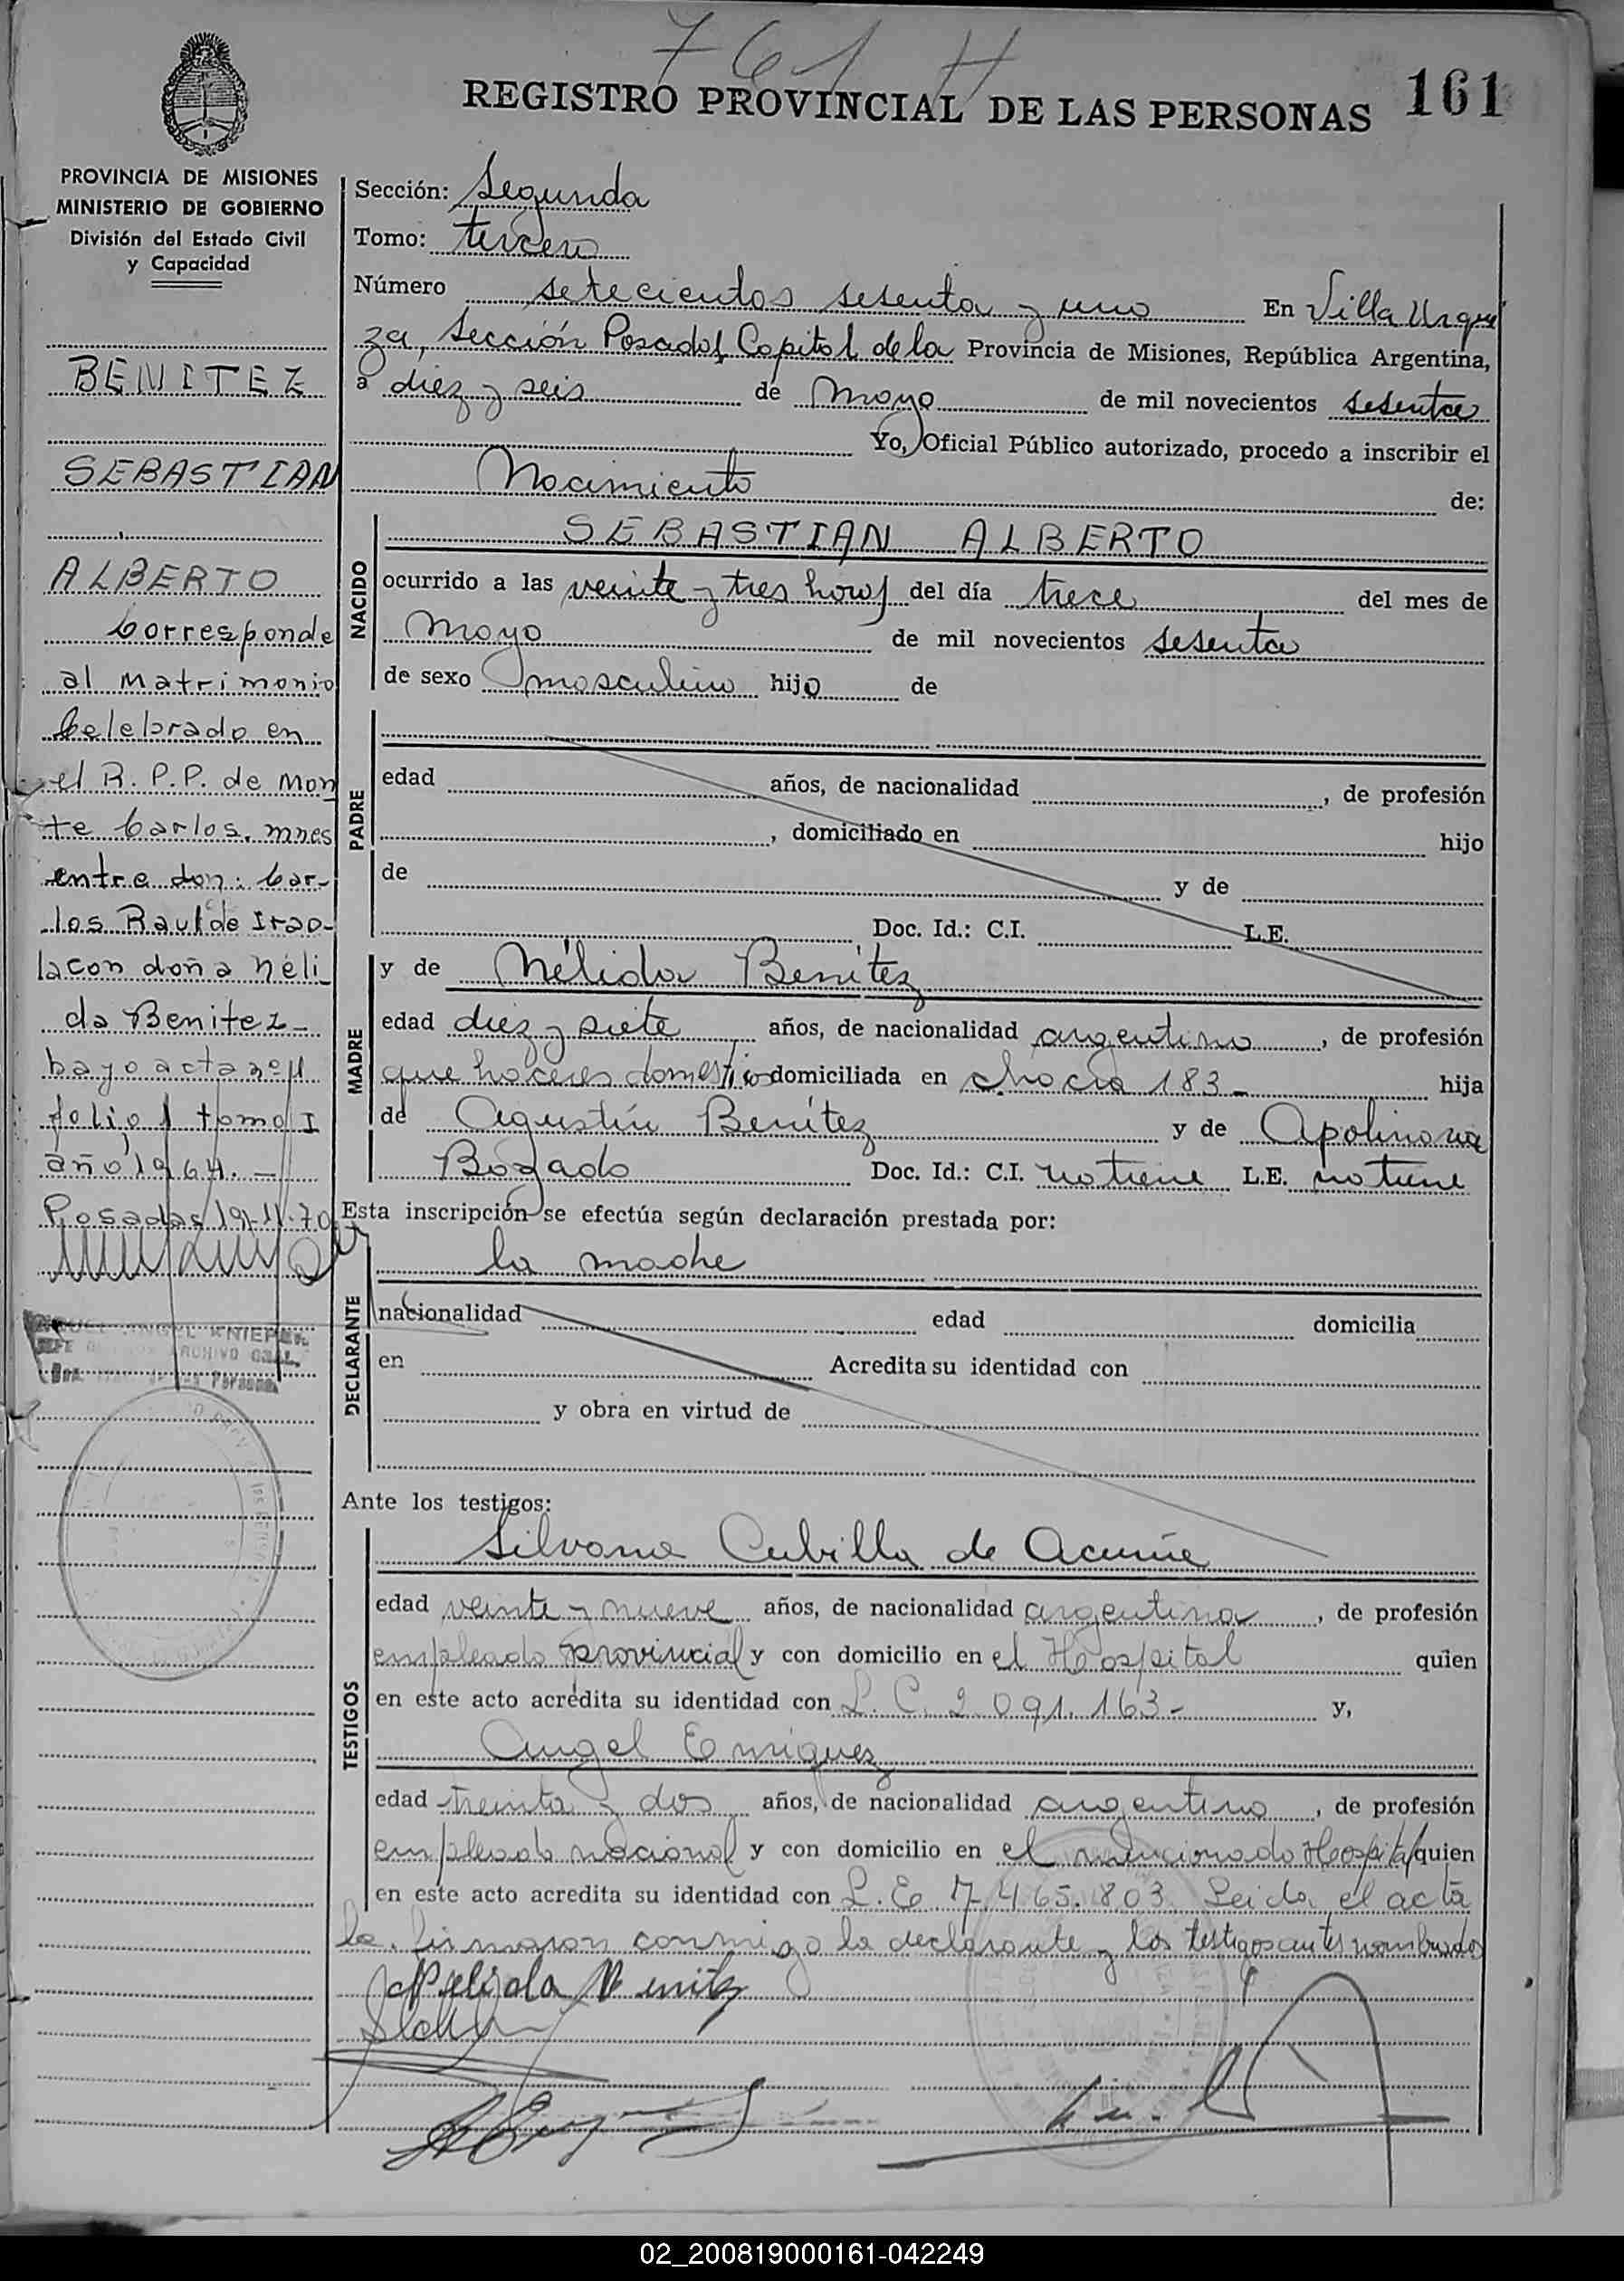 761 H
REGISTRO PROVINCIAL DE LAS PERSONAS 161
PROVINCIA DE MISIONES
MINISTERIO DE GOBIERNO
División del Estado Civil
y Capacidad
BENITEZ
SEBASTIAN
ALBERTO
Corresponde
al Matrimonio
Celebrado en
el R.P.P. de Mon
te Carlos. mnes
entre don: Car-
los Raul de Irao-
la con doña Néli
da Benitez-
bayo acta nº 11
folio 1 tomo I
año 1964.-
Posadas 19-11-70
Sección: Segunda
Tomo: tercero
Número setecientos sesenta y uno En Villa Urqui
za, Sección Posadas Capital de la Provincia de Misiones, República Argentina,
a diez y seis de Mayo de mil novecientos sesenta
Yo, Oficial Público autorizado, procedo a inscribir el
Nacimiento de:
NACIDO
SEBASTIAN ALBERTO
ocurrido a las veinte y tres horas del día trece del mes de
Mayo de mil novecientos sesenta
de sexo masculino hijo de
PADRE
edad años, de nacionalidad , de profesión
, domiciliado en hijo
de y de
Doc. Id.: C.I. L.E.
MADRE
y de Nélida Benítez
edad diez y siete años, de nacionalidad argentina, de profesión
que haceres domésticos domiciliada en chacra 183- hija
de Agustín Benítez y de Apolinaria
Bogado Doc. Id.: C.I. no tiene L.E. no tiene
Esta inscripción se efectúa según declaración prestada por:
DECLARANTE
la madre
nacionalidad edad domicilia
en Acredita su identidad con
y obra en virtud de
Ante los testigos:
TESTIGOS
Silvana Cubilla de Acuña
edad veinte y nueve años, de nacionalidad argentina, de profesión
empleada provincial y con domicilio en el Hospital quien
en este acto acredita su identidad con L.C. 2.091.163- y,
Angel Enriquez
edad treinta y dos años, de nacionalidad argentino, de profesión
empleado nacional y con domicilio en el mencionado Hospital quien
en este acto acredita su identidad con L.E. 7.465.803. Leida el acta
la firmaron conmigo la declarante y los testigos antes nombrados
Nelida Benitez
02_200819000161-042249